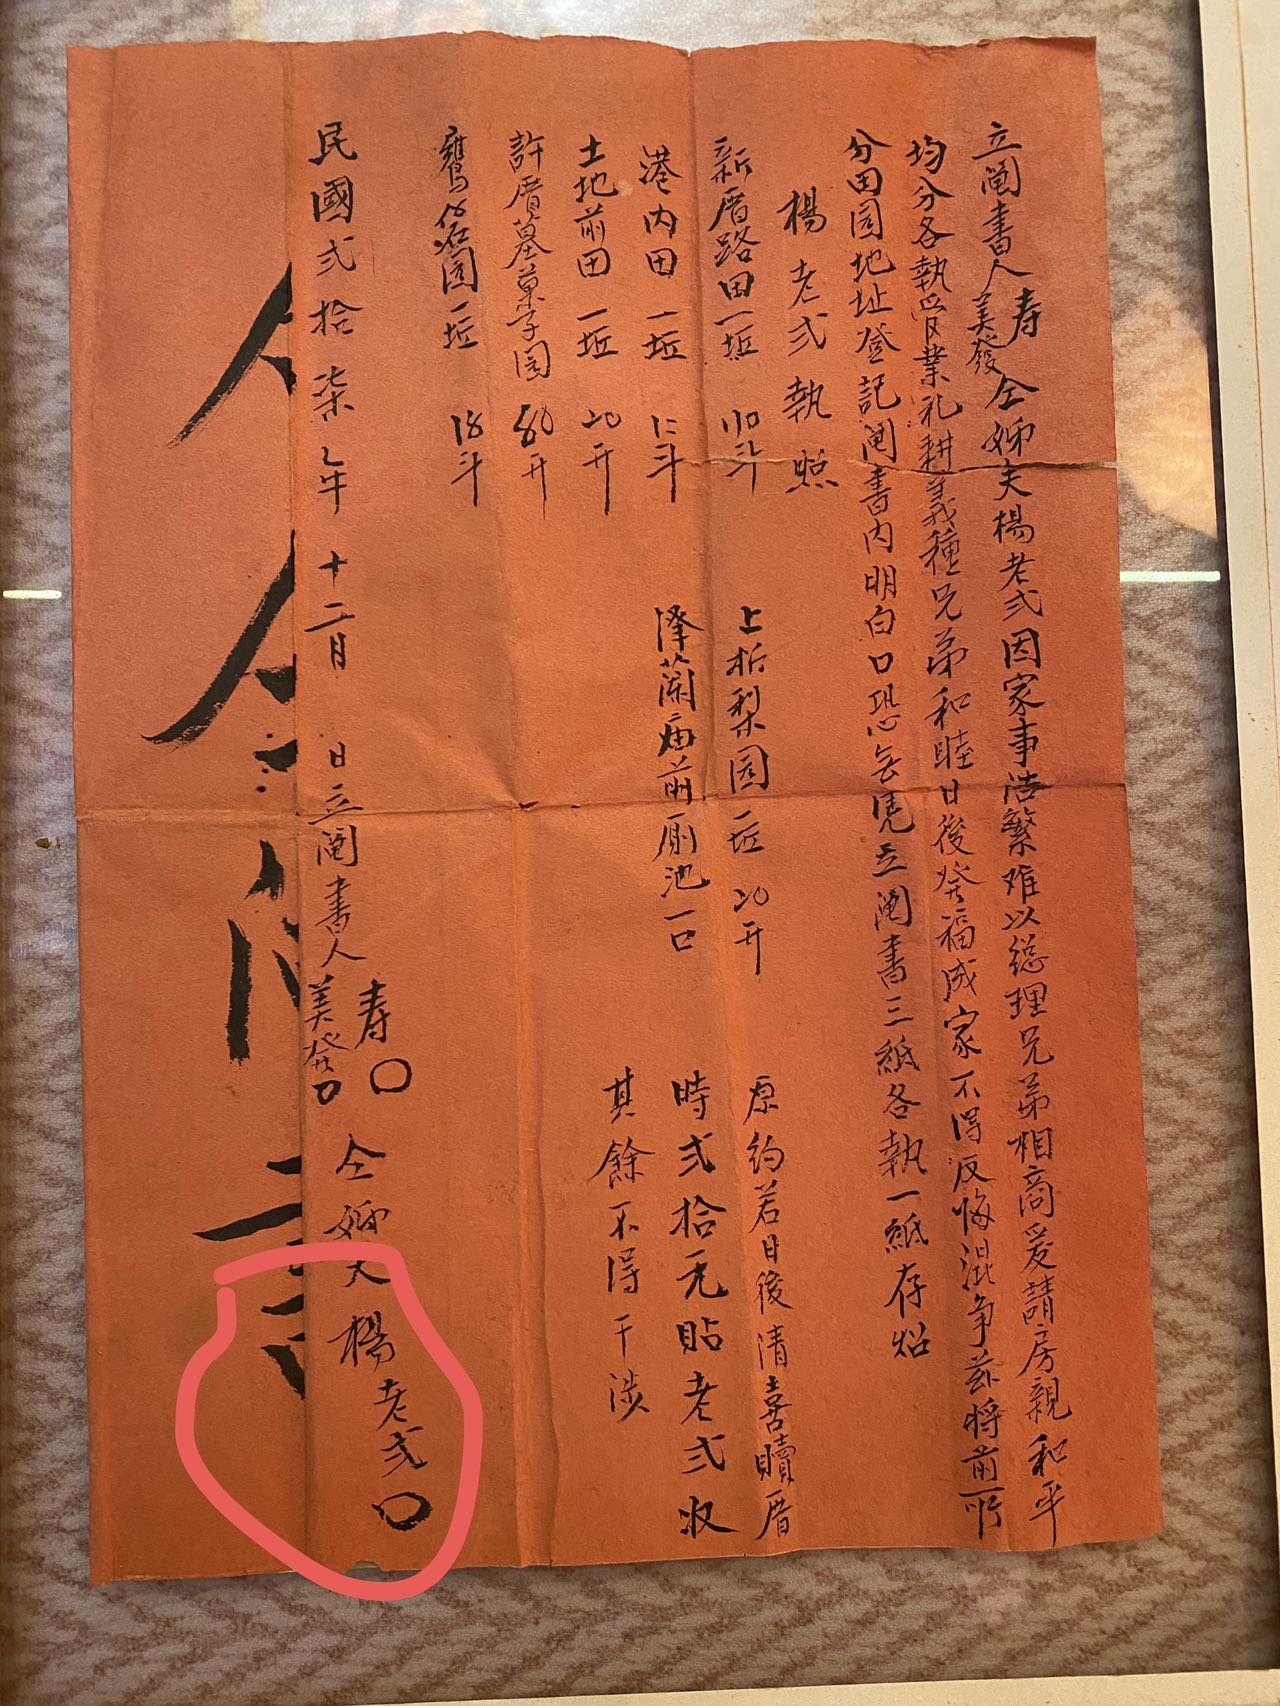 立阄書人寿美發仝姊夫楊老弍因家事浩繁难以総理兄弟相商爰請房親和平
均分各執管業礼耕義種兄弟和睦日後發福成家不得反悔混争兹将前所
分田园地址登記阄書内明白口恐無凭立阄書三紙各執一紙存炤
楊老弍執照
新厝路田一坵
斗
上 梨园一坵 20升
原約若日後清喜贖厝
港内田一坵
斗
澤蘭庙前厠池一口
時弍拾元貼老弍收
土地前田一坵 20升
其餘不得干涉
許厝墓 子园 80升
园一坵 18斗
民國弍拾柒年十二月 日立阄書人寿〇美發口 仝姊夫楊老弍〇